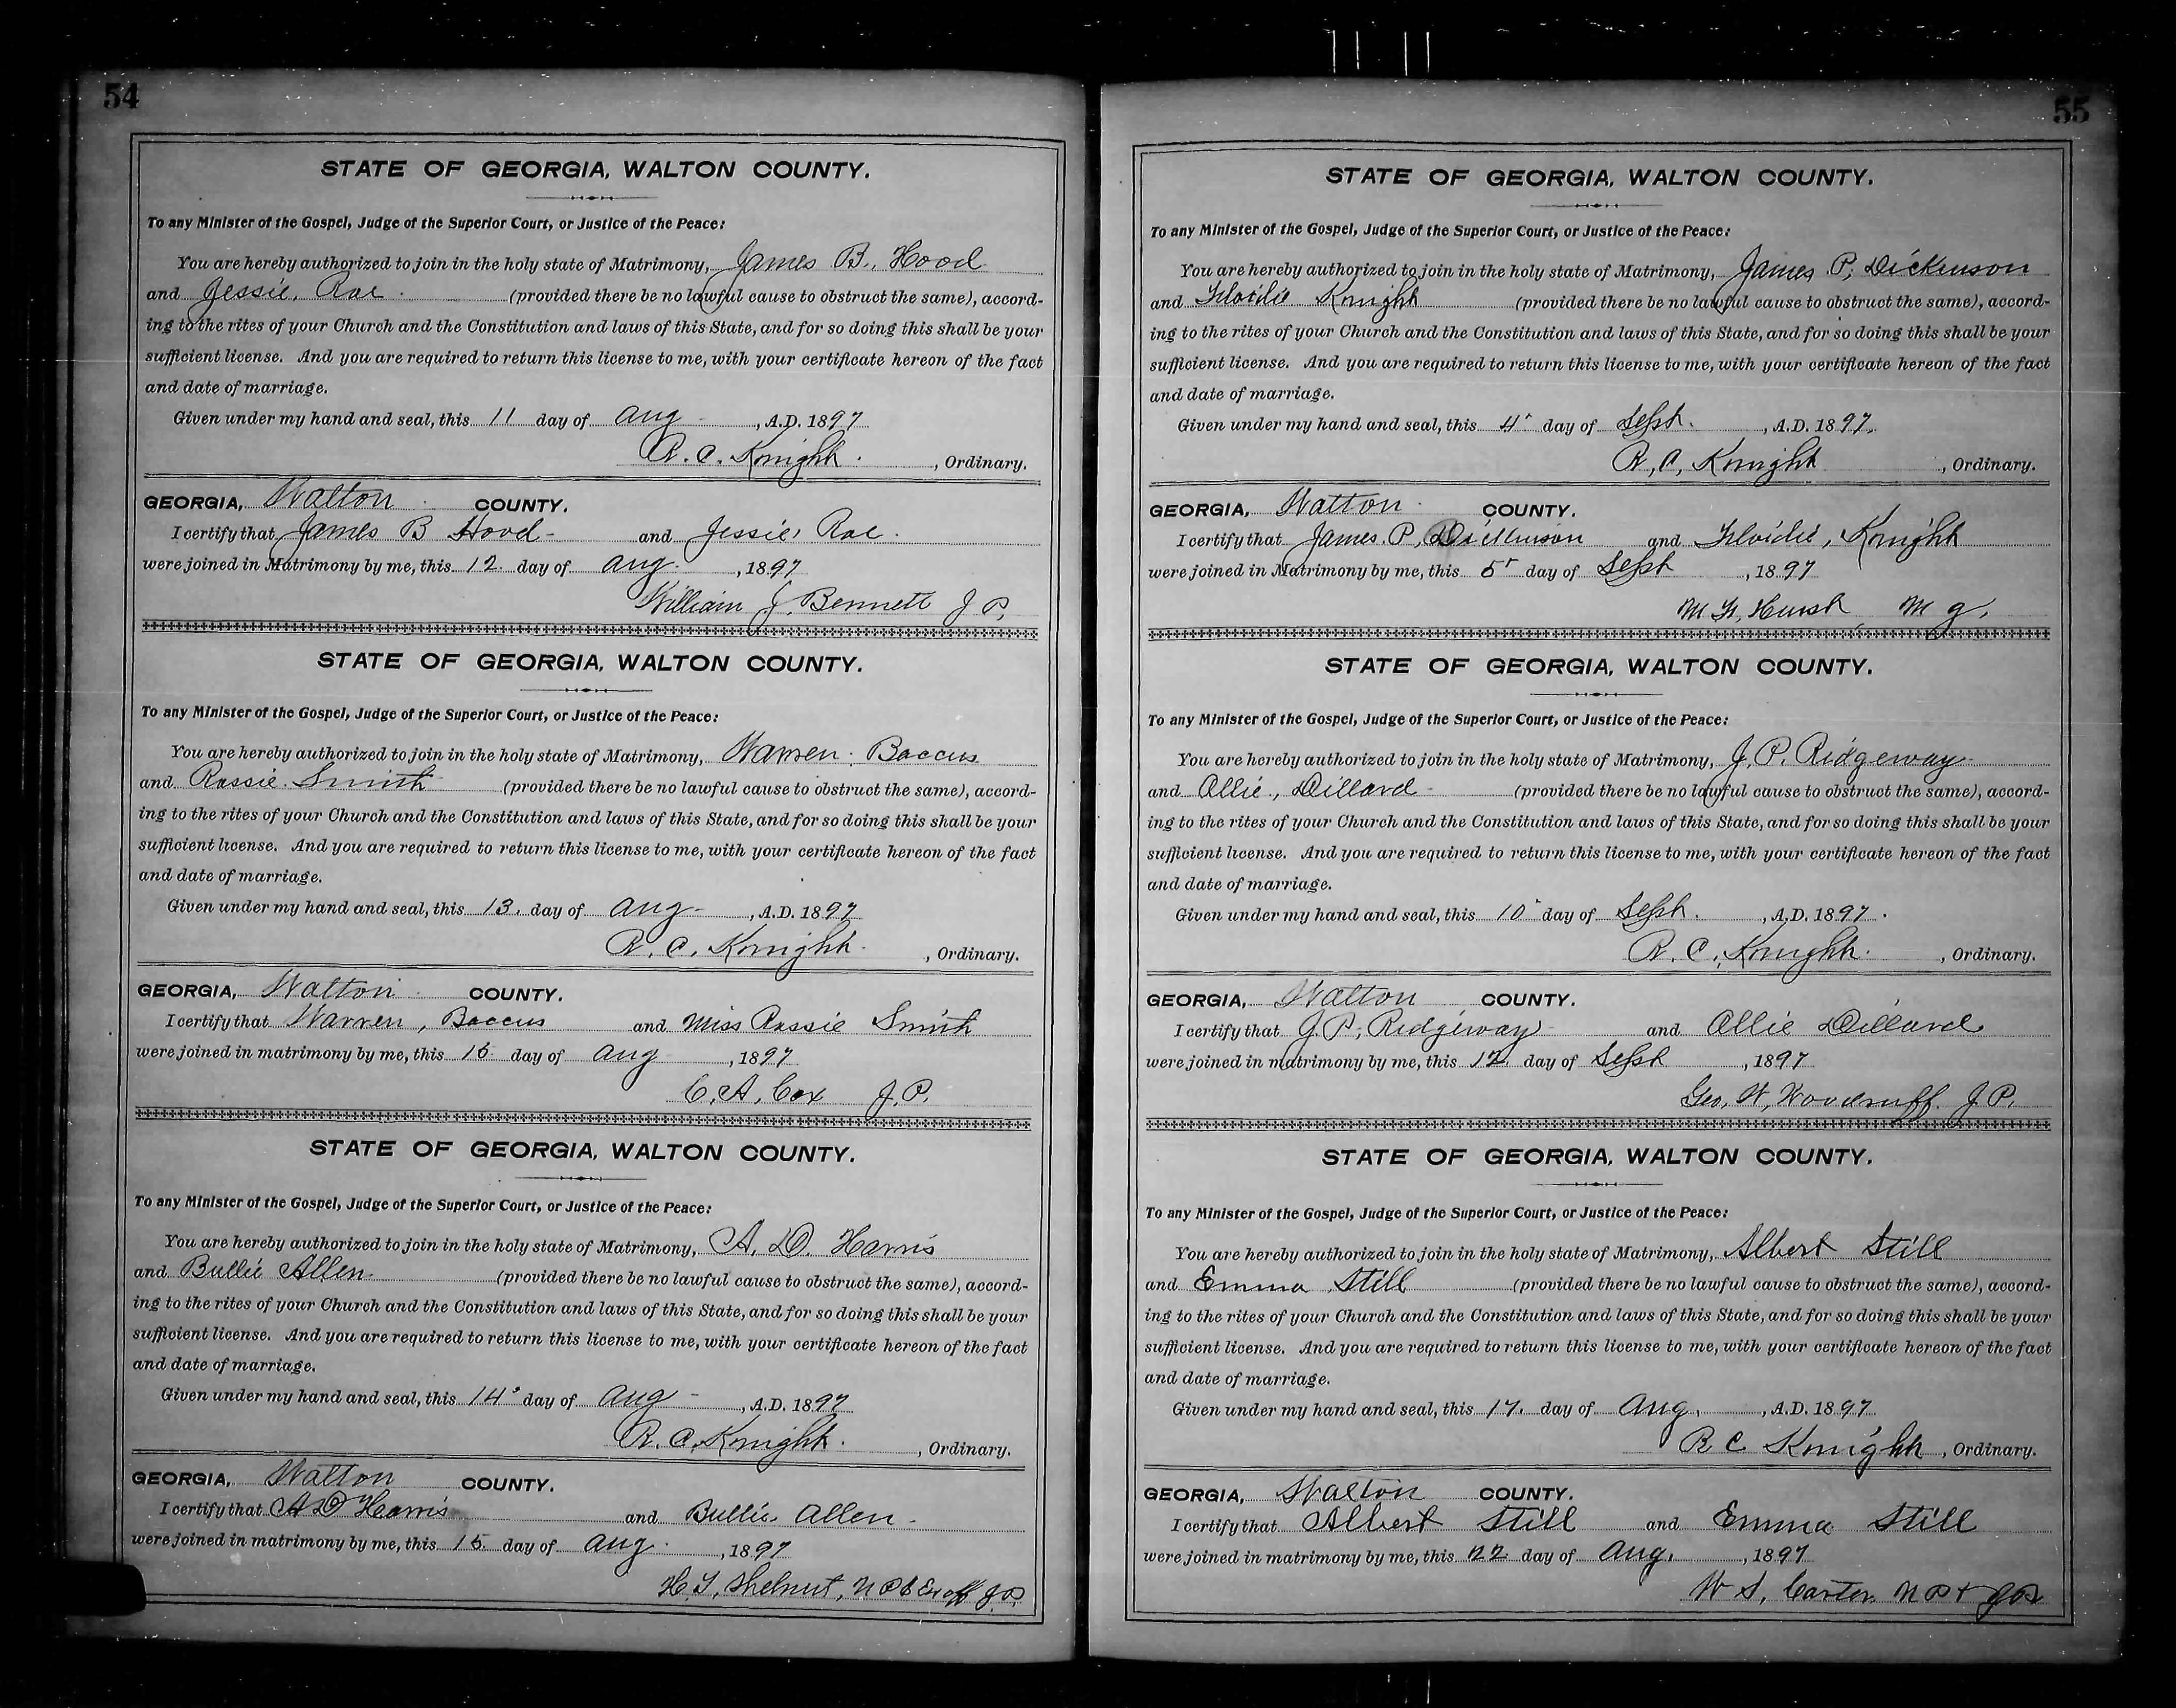 54
STATE OF GEORGIA, WALTON COUNTY.
To any Minister of the Gospel, Judge of the Superior Court, or Justice of the Peace:
You are hereby authorized to join in the holy state of Matrimony, James B. Hood
and Jessie Rae (provided there be no lawful cause to obstruct the same), accord-
ing to the rites of your Church and the Constitution and laws of this State, and for so doing this shall be your
sufficient license. And you are required to return this license to me, with your certificate hereon of the fact
and date of marriage.
Given under my hand and seal, this 11 day of Aug , A.D. 1897
R. C. Knight , Ordinary.
GEORGIA, Walton COUNTY.
I certify that James B Hood and Jessie Rae
were joined in Matrimony by me, this 12 day of Aug , 1897
William J. Bennett J P.
STATE OF GEORGIA, WALTON COUNTY.
To any Minister of the Gospel, Judge of the Superior Court, or Justice of the Peace:
You are hereby authorized to join in the holy state of Matrimony, Warren Baccus
and Rossie Smith (provided there be no lawful cause to obstruct the same), accord-
ing to the rites of your Church and the Constitution and laws of this State, and for so doing this shall be your
sufficient license. And you are required to return this license to me, with your certificate hereon of the fact
and date of marriage.
Given under my hand and seal, this 13. day of Aug , A.D. 1897
R. C. Knight , Ordinary.
GEORGIA, Walton COUNTY.
I certify that Warren, Baccus and Miss Rossie Smith
were joined in matrimony by me, this 15 day of Aug , 1897
C. A. Cox J. P.
STATE OF GEORGIA, WALTON COUNTY.
To any Minister of the Gospel, Judge of the Superior Court, or Justice of the Peace:
You are hereby authorized to join in the holy state of Matrimony, A. D. Harris
and Bullie Allen (provided there be no lawful cause to obstruct the same), accord-
ing to the rites of your Church and the Constitution and laws of this State, and for so doing this shall be your
sufficient license. And you are required to return this license to me, with your certificate hereon of the fact
and date of marriage.
Given under my hand and seal, this 14 day of Aug , A.D. 1897
R. C. Knight , Ordinary.
GEORGIA, Walton COUNTY.
I certify that A D Harris and Bullie Allen
were joined in matrimony by me, this 15 day of Aug , 1897
H. T. Shelnut, N P & Ex off J.P.
55
STATE OF GEORGIA, WALTON COUNTY.
To any Minister of the Gospel, Judge of the Superior Court, or Justice of the Peace:
You are hereby authorized to join in the holy state of Matrimony, James P. Dickinson
and Knight (provided there be no lawful cause to obstruct the same), accord-
ing to the rites of your Church and the Constitution and laws of this State, and for so doing this shall be your
sufficient license. And you are required to return this license to me, with your certificate hereon of the fact
and date of marriage.
Given under my hand and seal, this 4 day of Sept. , A.D. 1897.
R, C, Knight , Ordinary.
GEORGIA, Walton COUNTY.
I certify that James. P, Dickinson and Knight
were joined in Matrimony by me, this 5 day of Sept , 1897
M g.
STATE OF GEORGIA, WALTON COUNTY.
To any Minister of the Gospel, Judge of the Superior Court, or Justice of the Peace:
You are hereby authorized to join in the holy state of Matrimony, J. P. Ridgeway
and Allie, Dillard (provided there be no lawful cause to obstruct the same), accord-
ing to the rites of your Church and the Constitution and laws of this State, and for so doing this shall be your
sufficient license. And you are required to return this license to me, with your certificate hereon of the fact
and date of marriage.
Given under my hand and seal, this 10 day of Sept. , A.D. 1897.
R. C. Knight. , Ordinary.
GEORGIA, Walton COUNTY.
I certify that J. P. Ridgeway and Allie Dillard
were joined in matrimony by me, this 12 day of Sept , 1897
Geo. W. Woodruff. J P.
STATE OF GEORGIA, WALTON COUNTY.
To any Minister of the Gospel, Judge of the Superior Court, or Justice of the Peace:
You are hereby authorized to join in the holy state of Matrimony, Albert Still
and Emma Still (provided there be no lawful cause to obstruct the same), accord-
ing to the rites of your Church and the Constitution and laws of this State, and for so doing this shall be your
sufficient license. And you are required to return this license to me, with your certificate hereon of the fact
and date of marriage.
Given under my hand and seal, this 17. day of Aug. , A.D. 1897
R C Knight , Ordinary.
GEORGIA, Walton COUNTY.
I certify that Albert Still and Emma Still
were joined in matrimony by me, this 22 day of Aug. , 1897
W S. Carter N P & J P